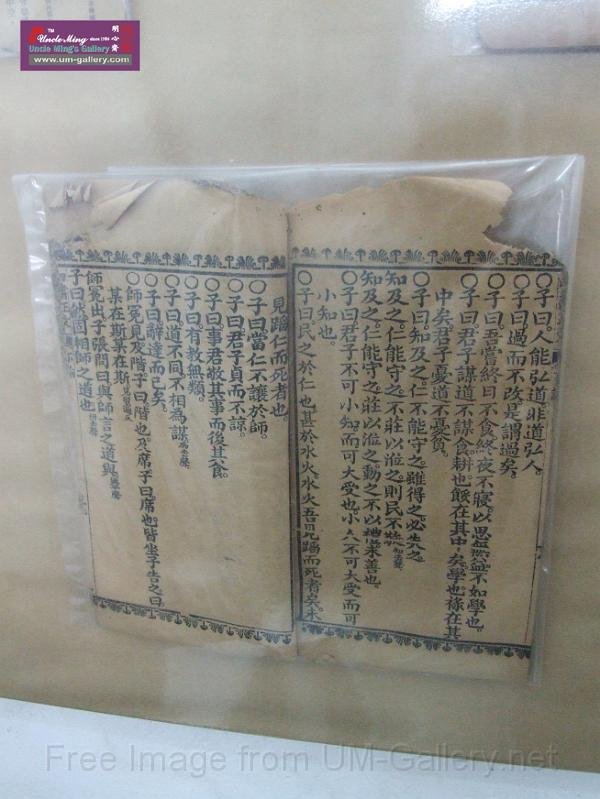 TM
Uncle Ming since 1986
明心齋
Uncle Ming's Gallery
www.um-gallery.com
〇子曰人能弘道非道弘人。
〇子曰過而不改是謂過矣。
〇子曰吾嘗終日不食終夜不寢以思無益不如學也。
〇子曰君子謀道不謀食耕也餒在其中矣學也祿在其
中矣君子憂道不憂貧。
〇子曰知及之仁不能守之雖得之必失之
知及之仁能守之不莊以涖之則民不敬
知及之仁能守之莊以涖之動之不以禮未善也。
〇子曰君子不可小知而可大受也小人不可大受而可
小知也。
〇子曰民之於仁也甚於水火水火吾見蹈而死者矣未
見蹈仁而死者也。
〇子曰當仁不讓於師。
〇子曰君子貞而不諒。
〇子曰事君敬其事而後其食。
〇子曰有教無類。
〇子曰道不同不相為謀
〇子曰辭達而已矣。
〇師冕見及階子曰階也及席子曰席也皆坐子告之曰
某在斯某在斯
師冕出子張問曰與師言之道與
子曰然固相師之道也
Free Image from UM-Gallery.net